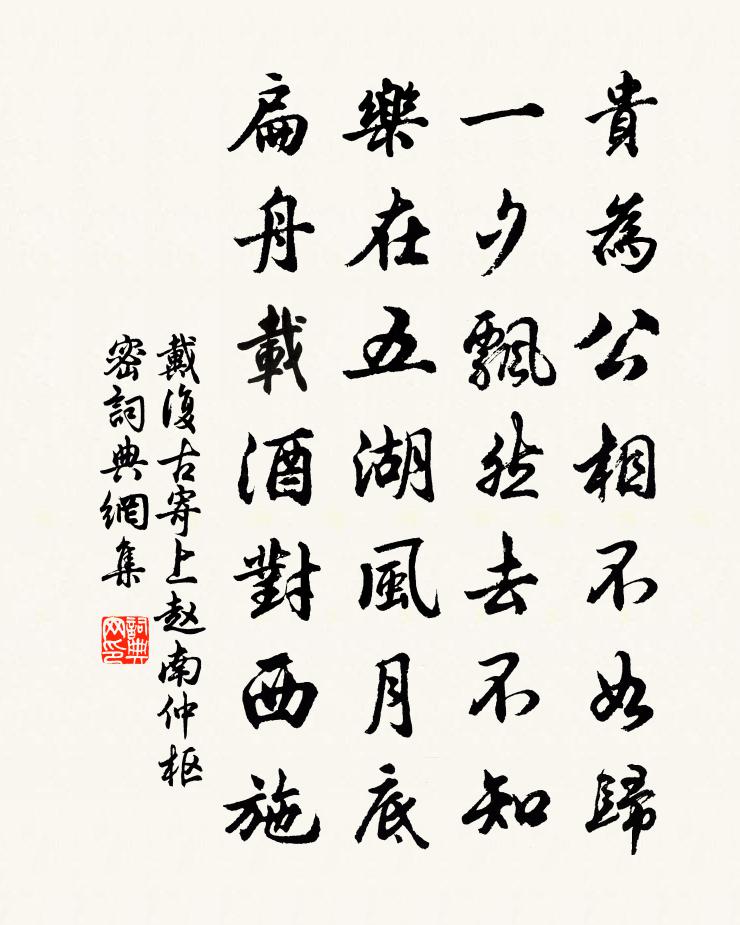 貴為公相不如歸
一夕飄然去不知
樂在五湖風月底
扁舟載酒對西施
戴復古寄上赵南仲枢
密詞典網集
詞典网印